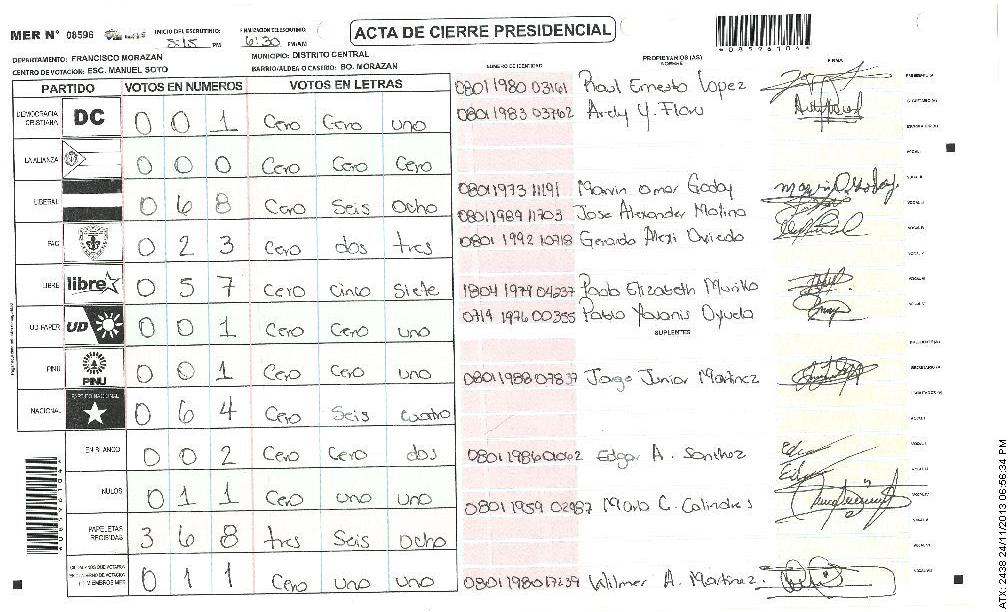 MER N° 08596
INICIO DEL ESCRUTINIO: 5:15 PM
FINALIZACION ESCRUTINIO: 6:30 PM/AM
ACTA DE CIERRE PRESIDENCIAL
DEPARTAMENTO: FRANCISCO MORAZAN
MUNICIPIO: DISTRITO CENTRAL
CENTRO DE VOTACION: ESC. MANUEL SOTO
BARRIO/ALDEA O CASERIO: BO. MORAZAN
NUMERO DE IDENTIDAD PROPIETARIOS (AS) NOMBRE FIRMA
PARTIDO VOTOS EN NUMEROS VOTOS EN LETRAS
DEMOCRACIA CRISTIANA DC 0 0 1 Cero Cero uno
LA ALIANZA 0 0 0 Cero Cero Cero
LIBERAL 0 6 8 Cero Seis Ocho
PAC 0 2 3 Cero dos tres
LIBRE libre 0 5 7 Cero Cinco Siete
UD-FAPER UD 0 0 1 Cero Cero uno
PINU PINU 0 0 1 Cero Cero uno
NACIONAL PARTIDO NACIONAL 0 6 4 Cero Seis cuatro
EN BLANCO 0 0 2 Cero Cero dos
NULOS 0 1 1 Cero uno uno
PAPELETAS RECIBIDAS 3 6 8 tres Seis Ocho
0 1 1 Cero uno uno
0801 1980 03161 Raul Ernesto Lopez
0801 1983 03762 Ardy Y. Flow
0801 1973 11191 Marvin Omar Goday
0801 1989 11703 Jose Alexander Molina
0801 1992 10718 Gerardo Alexi Oviedo
1804 1979 04237 Elizabeth Murillo
0719 1976 00355 Pablo Oyuela
SUPLENTES
0801 1988 07837 Jorge Junior Martinez
Edgar A. Sanchez
0801 1959 02987 Mario C. Colindres
0801 1980 17239 Wilmer A. Martinez.
ATX 2438 24/11/2013 06:56:34 PM